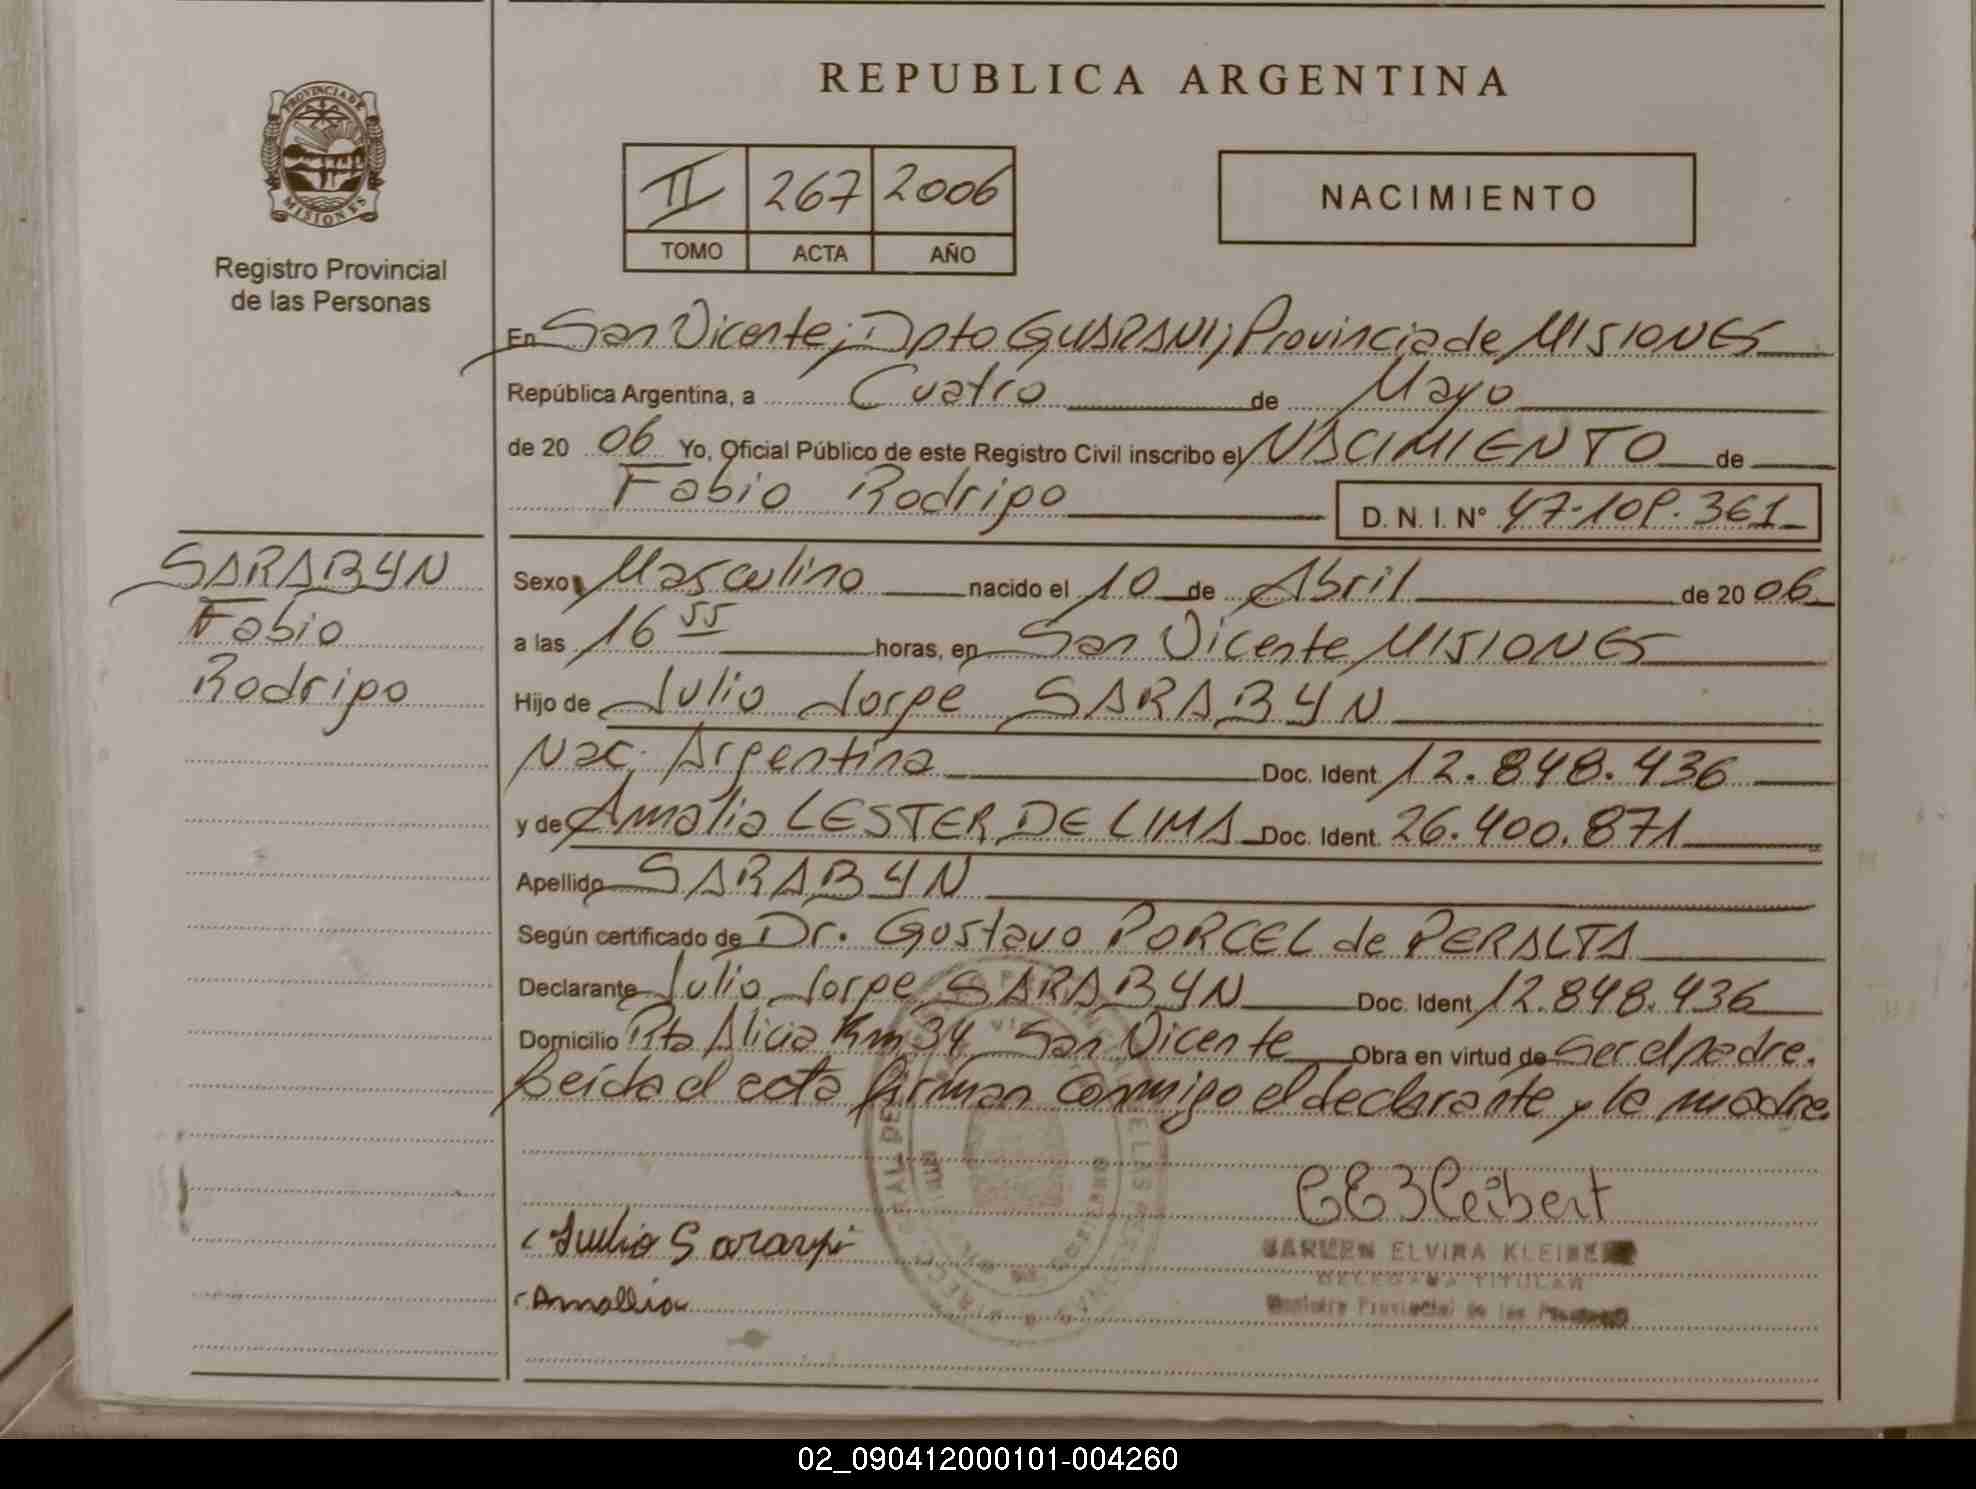 REPUBLICA ARGENTINA
PROVINCIA DE
MISIONES
Registro Provincial
de las Personas
II 267 2006
TOMO ACTA AÑO
NACIMIENTO
En San Vicente; Dpto GUARANI; Provincia de MISIONES
República Argentina, a Cuatro de Mayo
de 20 06 Yo, Oficial Público de este Registro Civil inscribo el NACIMIENTO de
Fabio Rodrigo D. N. I. N°
SARABYN
Fabio
Rodrigo
Sexo Masculino nacido el 10 de Abril de 20 06
a las 16 55 horas, en San Vicente MISIONES
Hijo de Julio Jorge SARABYN
Nac. Argentina Doc. Ident. 12.848.436
y de Amalia LESTER DE LIMA Doc. Ident. 26.400.871
Apellido SARABYN
Según certificado de Dr. Gustavo PORCEL de PERALTA
Declarante Julio Jorge SARABYN Doc. Ident. 12.848.436
Domicilio Pto Alicia Km 34 San Vicente Obra en virtud de Ser el padre.
Leida el acta firman conmigo el declarante y la madre.
CEKleibert
Julio
CARMEN ELVIRA
DELEGADA TITULAR
Amallia
Registro Provincial de las Personas
02_090412000101-004260